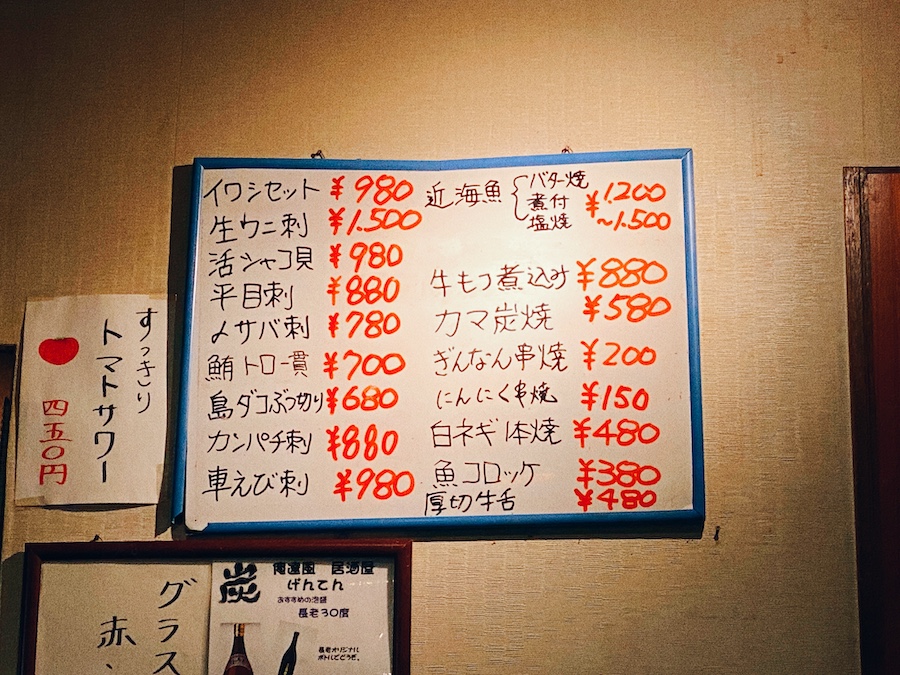 イワシセット ¥980
生ウニ刺 ¥1.500
活シャコ貝 ¥980
平目刺 ¥880
〆サバ刺 ¥780
鮪トロ一貫 ¥700
島ダコぶつ切り ¥680
カンパチ刺 ¥880
車えび刺 ¥980
近海魚 バター焼 煮付 塩焼 ¥1.200 ~1.500
牛もつ煮込み ¥880
カマ炭焼 ¥580
ぎんなん串焼 ¥200
にんにく串焼 ¥150
白ネギ1本焼 ¥480
魚コロッケ ¥380
厚切牛舌 ¥480
すっきり
トマトサワー
四五〇円
グラス
赤
炭
居酒屋
げんてん
おすすめの泡盛
長老30度
長老オリジナル
ボトルでどうぞ。